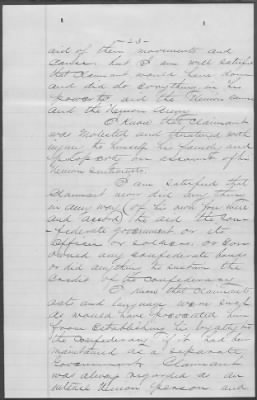 -23-
aid of their movements and
cause. but I am well satisfied
that claimant would have done
and did do everything in his
power to aid the Union cause
and the Union Army
I know that claimant
was molested and threatened with
injury to himself his family and
property on account of his
Union sentiments.
I am satisfied that
claimant never did any thing
in any way (of his own free will
and accord) to aid the Con-
federate government or its
officers or soldiers, or
owned any confederate bonds
or did anything to sustain the
credit of the confederacy
I know that claimants
acts and language were such
as would have prevented him
from establishing his loyalty to
the confederacy if it had been
maintained as a separate
Government. Claimant
was always regarded as an
intense Union person and